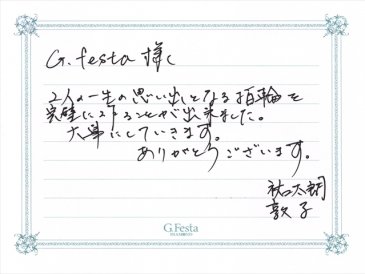 G.festa 様へ
2人の一生の思い出となる指輪を
完璧にすることが出来ました。
大事にしていきます。
ありがとうございます。
太朗
敦子
G.Festa
DIAMOND